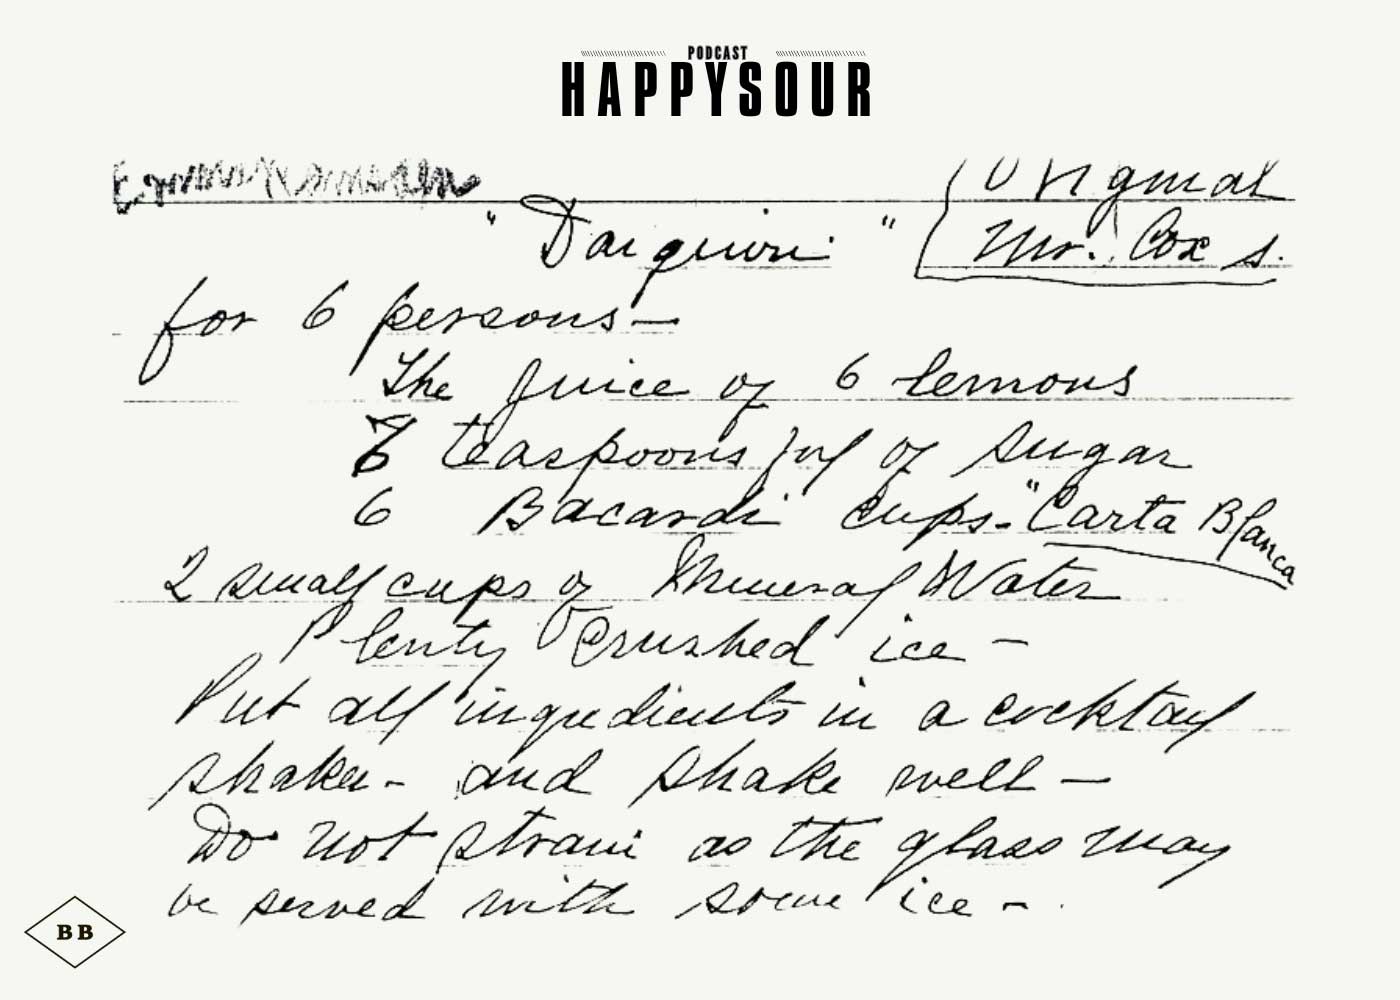 PODCAST
HAPPYSOUR
Original
"Daiquiri" Mr. Cox's.
for 6 persons—
The juice of 6 lemons
6 teaspoons ful of sugar
6 Bacardi cups - "Carta Blanca
2 small cups of Mineral Water
Plenty crushed ice -
Put all ingredients in a cocktail
shaker - and shake well -
Do not strain as the glass may
be served with some ice -.
BB